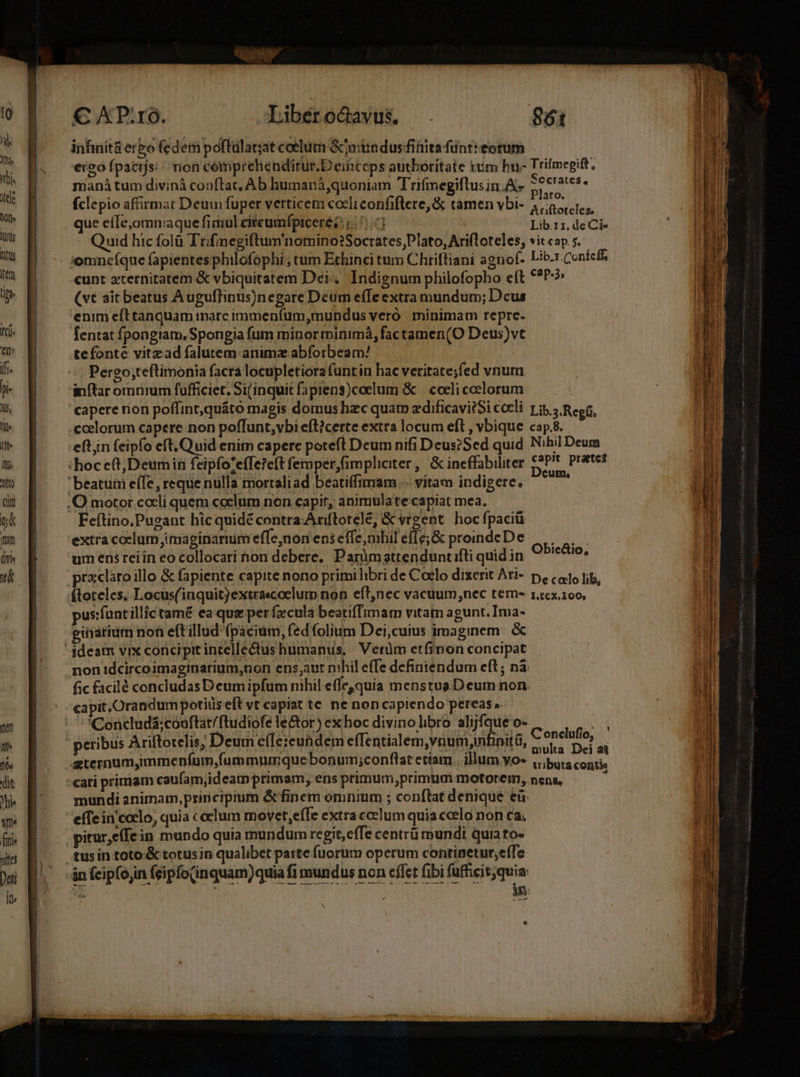 CAP.10. Liber octauus. 861
infinitã ergo sedem postulat;at cœlum & mundus finita sunt: eorum
ergo spatijs non comprehenditur. Deinceps authoritate tum hu-
manâ tum divinâ constat. Ab humanâ, quoniam Trismegistus in A-
sclepio affirmat Deum super verticem cœli consistere, & tamen vbi-
que esse, omniaque simul circumspicere;
Quid hic solũ Trismegistum nomino? Socrates, Plato, Aristoteles,
omnesque sapientes philosophi, tum Ethinci tum Christiani agnos-
cunt æternitatem & vbiquitatem Dei. Indignum philosopho est
(vt ait beatus Augustinus) negare Deum esse extra mundum; Deus
enim est tanquam mare immensum, mundus verò minimam repre-
sentat spongiam. Spongia sum minor minimâ, fac tamen (O Deus) vt
te fonte vitæ ad salutem animæ absorbeam!
Pergo; testimonia sacra locupletiora sunt in hac veritate; sed vnum
instar omnium sufficiet. Si (inquit sapiens) cœlum & cœli cœlorum
capere non possint, quãto magis domus hæc quam ædificavi? Si cœli
cœlorum capere non possunt, vbi est? certe extra locum est, vbique
est, in seipso est. Quid enim capere potest Deum nisi Deus? Sed quid
hoc est, Deum in seipso esse? est semper, simpliciter, & ineffabiliter
beatum esse, reque nulla mortali ad beatissimam vitam indigere.
O motor cœli quem cœlum non capit, animula te capiat mea.
Festino. Pugant hic quidẽ contra Aristotelẽ, & vrgent hoc spaciũ
extra cœlum, imaginarium esse, non ens esse, nihil esse; & proinde De
um ens rei in eo collocari non debere. Parùm attendunt isti quid in
præclaro illo & sapiente capite nono primi libri de Cœlo dixerit Ari-
stoteles. Locus (inquit) extra cœlum non est, nec vacuum, nec tem-
pus: sunt illic tamẽ ea quæ per sæcula beatissimam vitam agunt. Ima-
ginarium non est illud spacium, sed solium Dei, cuius imaginem &
ideam vix concipit intellectus humanus. Verùm etsi non concipat
non idcirco imaginarium, non ens, aut nihil esse definiendum est; nã
sic facilè concludas Deum ipsum nihil esse, quia mens tua Deum non
capit. Orandum potiùs est vt capiat te ne non capiendo pereas.
Concludã; constat (studiose lector) ex hoc divino libro alijsque o-
peribus Aristotelis, Deum esse: eundem essentialem, vnum, infinitũ,
æternum, immensum, summumque bonum; constat etiam, illum vo-
cari primam causam, ideam primam, ens primum, primum motorem,
mundi animam, principium & finem omnium; constat denique eũ
esse in cœlo, quia cœlum movet, esse extra cœlum quia cœlo non ca,
pitur, esse in mundo quia mundum regit, esse centrũ mundi quia to-
tus in toto & totus in qualibet parte suorum operum continetur, esse
in seipso, in seipso (inquam) quia si mundus non esset sibi sufficit; quia
in
Trismegist.
Socrates.
Plato.
Aristoteles.
Lib.11. de Ci-
vit cap 5.
Lib.1. Confess.
cap.3.
Lib.3. Regũ.
cap.8.
Nihil Deum
capit præter
Deum.
Obiectio.
De cælo lib,
1.tex.100.
Conclusio,
multa Dei at
tributa conti-
nens.